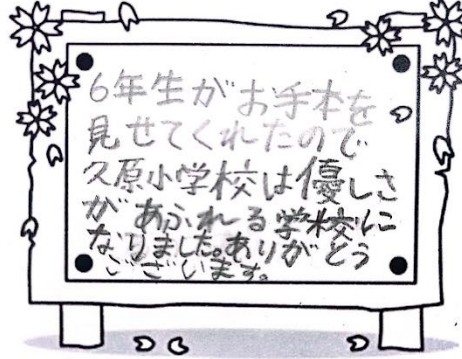 6年生がお手本を
見せてくれたので
久原小学校は優しさ
があふれる学校に
なりました。ありがとう
ございます。